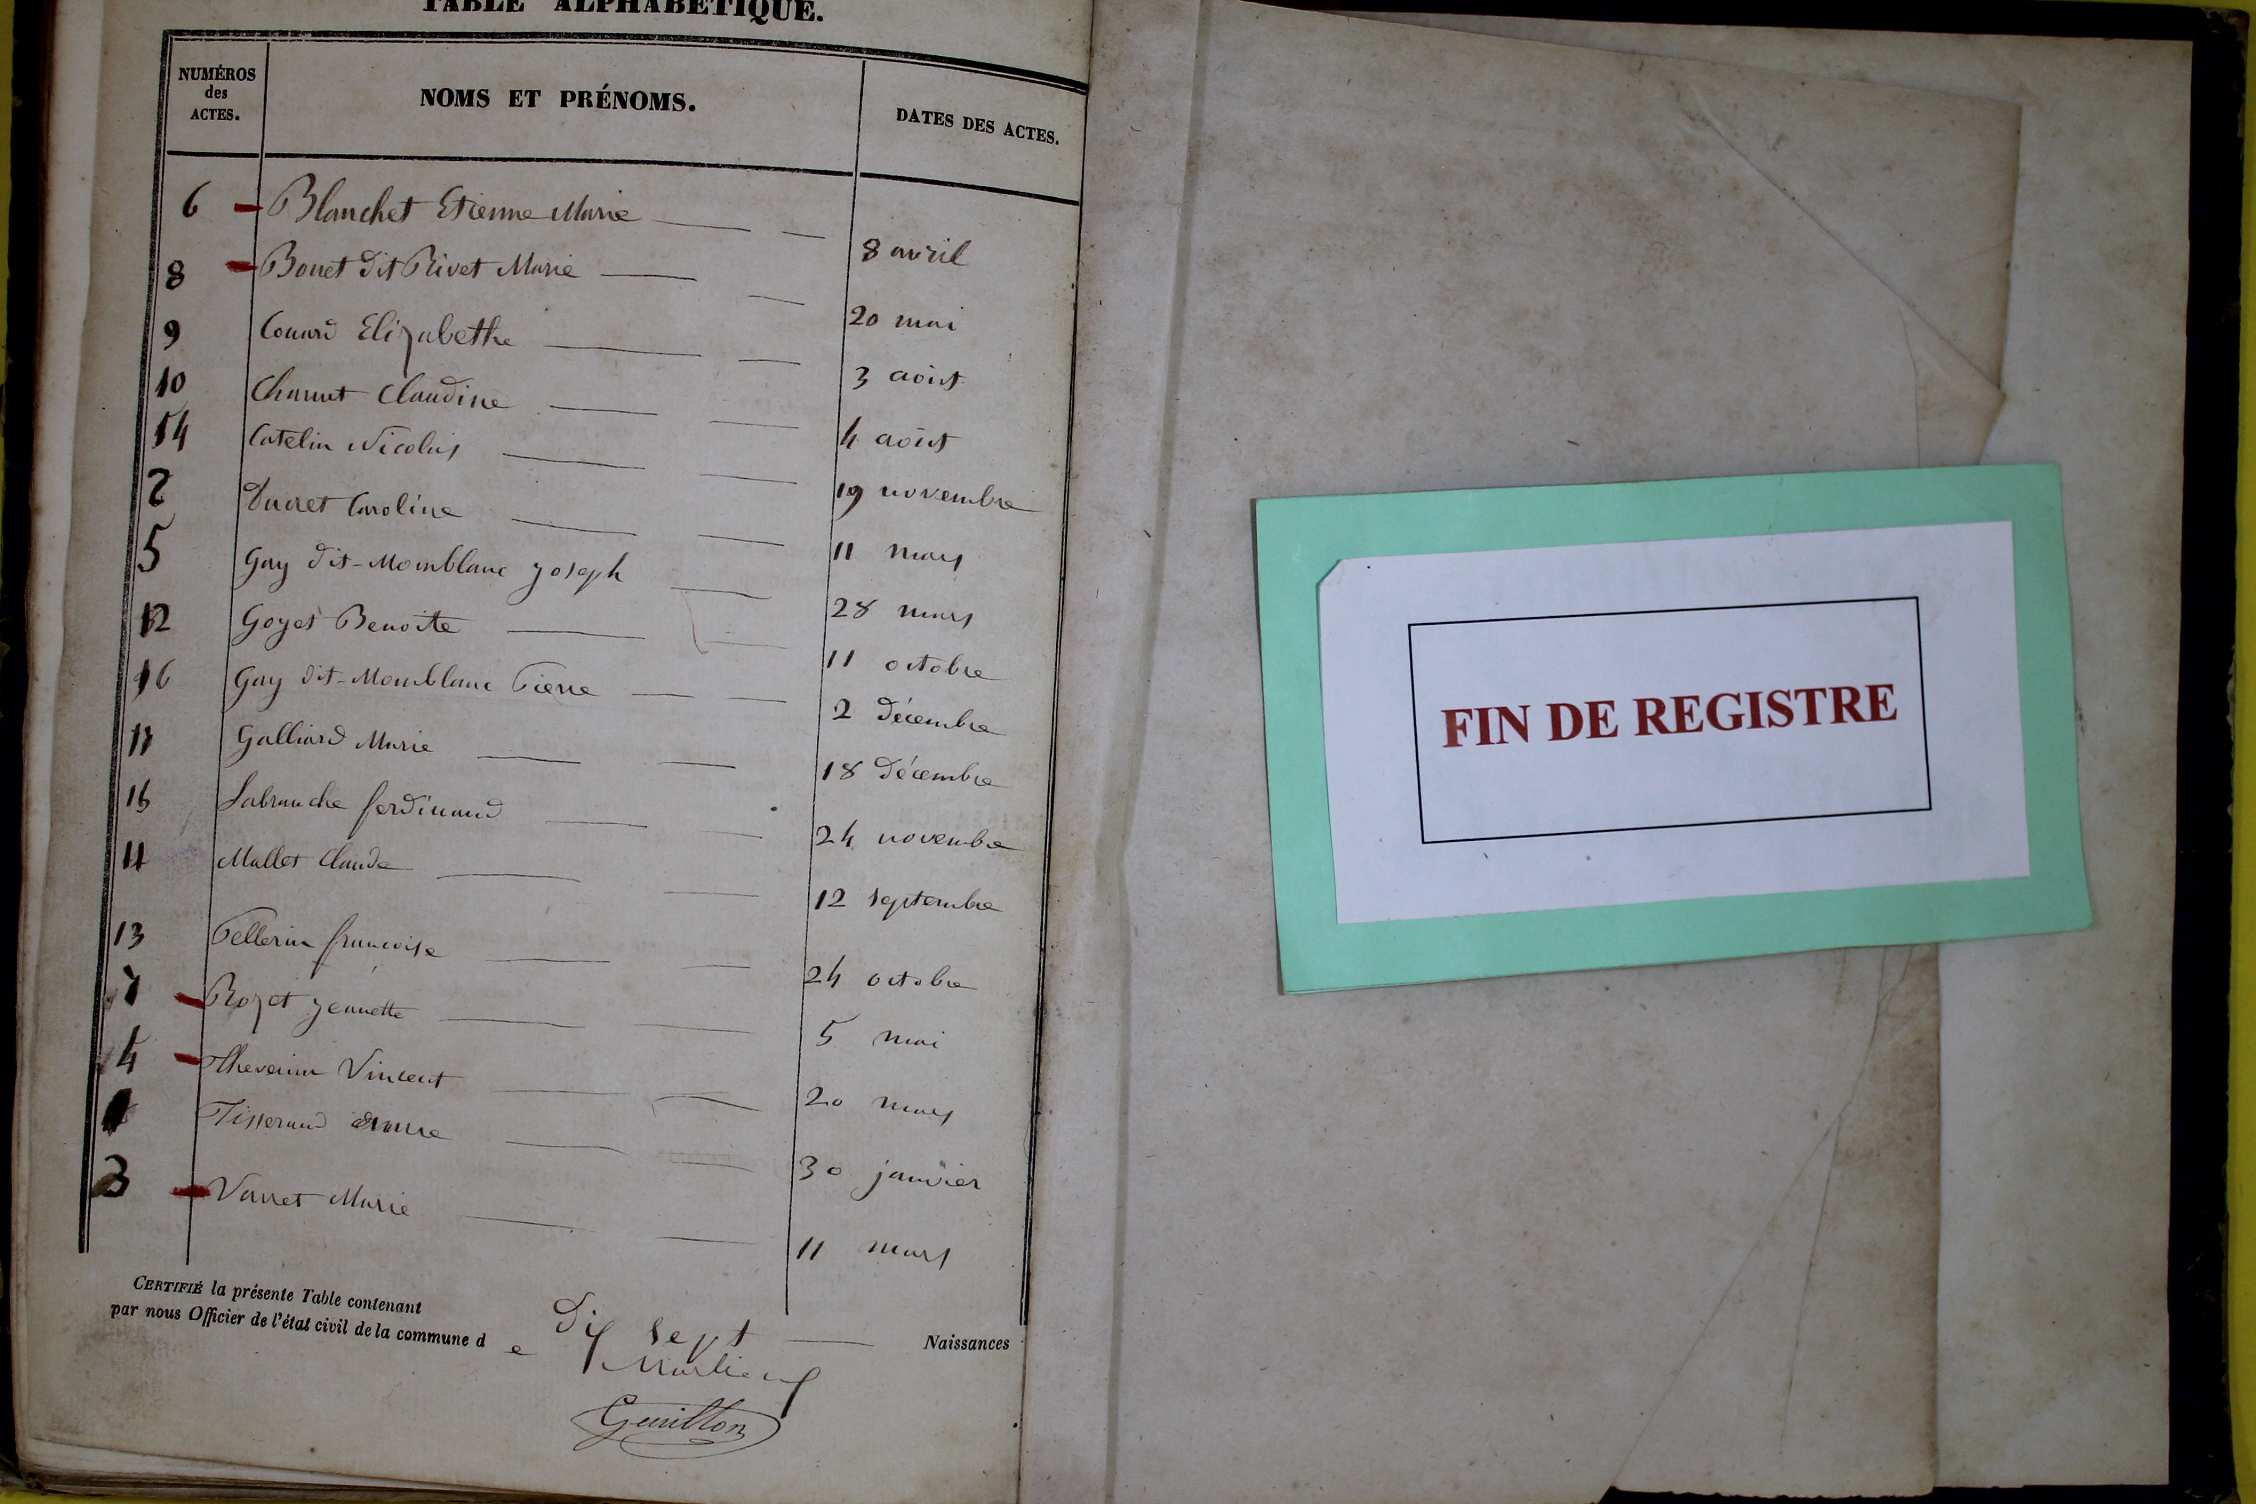 TABLE ALPHABÉTIQUE.
NUMÉROS des ACTES. NOMS ET PRÉNOMS. DATES DES ACTES.
6 Blanchet Etienne Marie 8 avril
8 Bonet dit Rivet Marie 20 mai
9 Couard Elizabethe 3 août
10 Charnet Claudine 4 août
14 Catelin Nicolas 19 novembre
2 Ducret Caroline 11 mars
5 Gay dit-Momblanc Joseph 28 mars
12 Goyet Benoite 11 octobre
16 Gay dit-Momblanc Pierre 2 décembre
17 Galliard Marie 18 décembre
15 Labranche ferdinand 24 novembre
11 Mallet Claude 12 septembre
13 Pellerin françoise 24 octobre
7 Rozet Jeannette 5 mai
4 Thevenin Vincent 20 mars
Tisserand 30 janvier
3 Varret Marie 11 mars
CERTIFIÉ la présente Table contenant dix sept Naissances
par nous Officier de l'état civil de la commune de Marlieux
Guillon
FIN DE REGISTRE